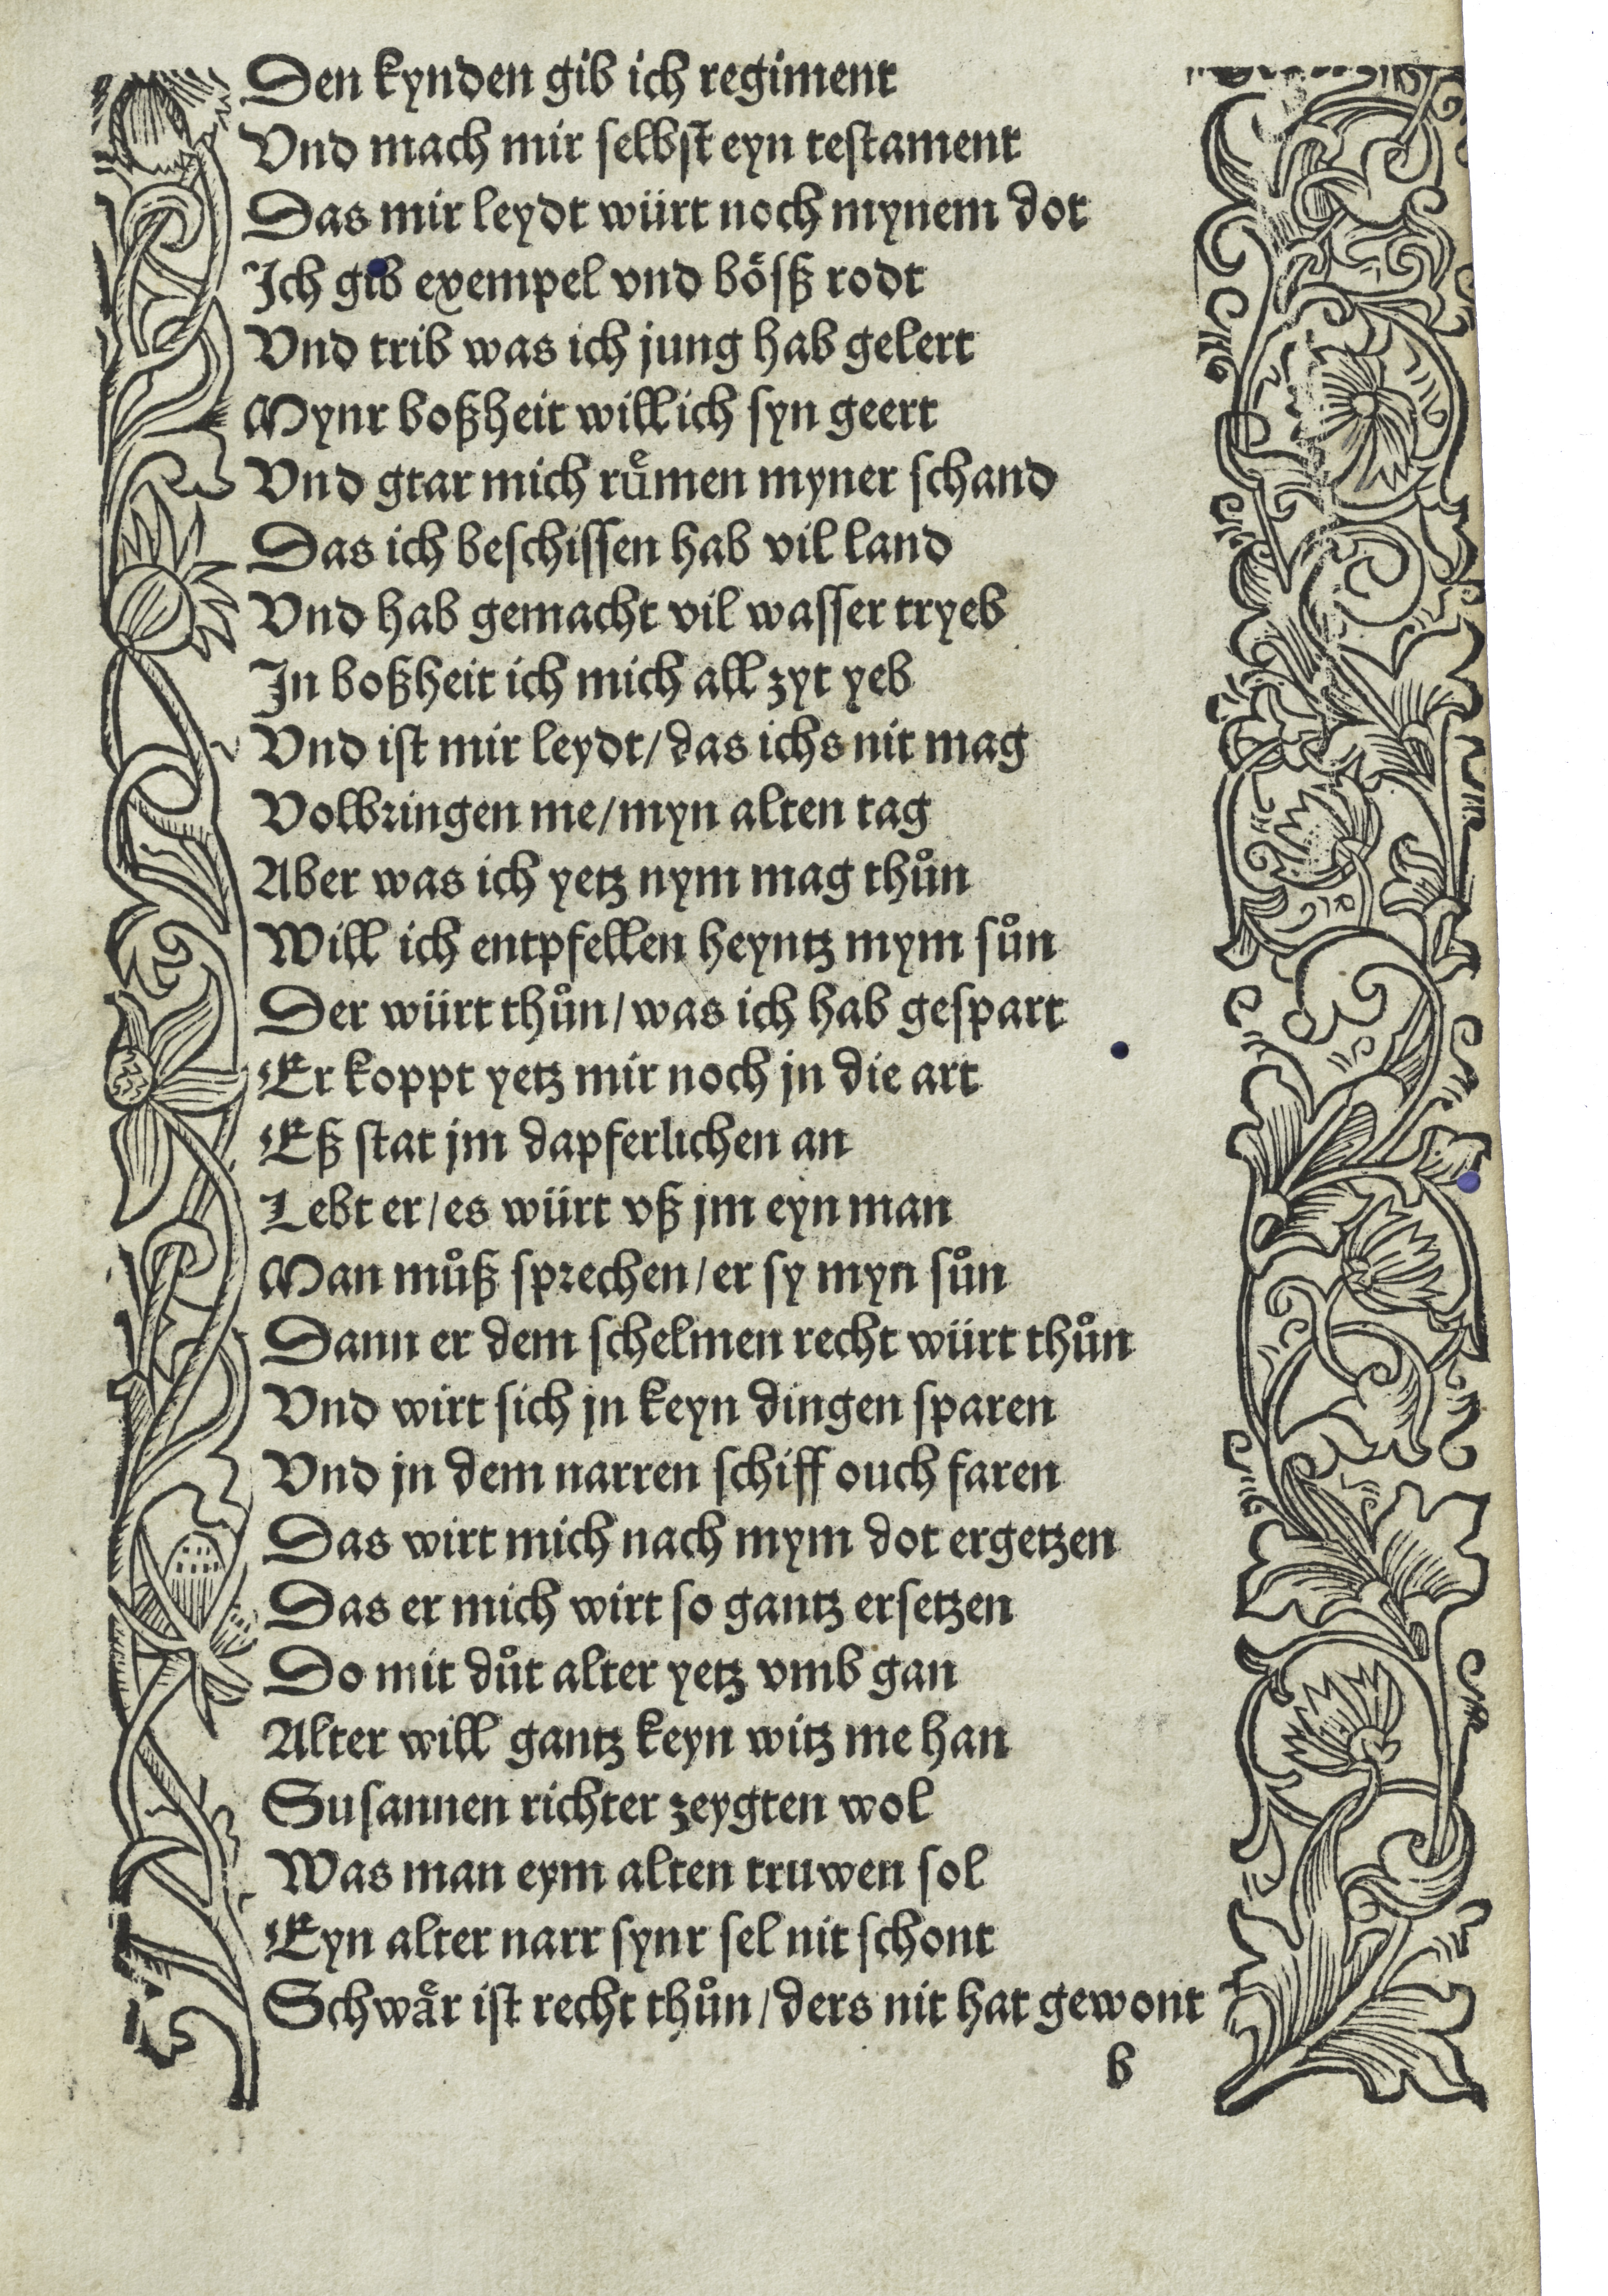 Den kynden gib ich regiment
Vnd mach mir selbst eyn testament
Das mir leydt würt noch mynem dot
Ich gib exempel vnd bößß rodt
Vnd trib was ich jung hab gelert
Mynr boßheit will ich syn geert
Vnd gtar mich ruͤmen myner schand
Das ich beschissen hab vil land
Vnd hab gemacht vil wasser tryeb
In boßheit ich mich all zyt yeb
Vnd ist mir leydt/das ichs nit mag
Volbringen me/myn alten tag
Aber was ich yetz nym mag thuͦn
Will ich entpfellen heyntz mym suͦn
Der würt thuͦn/was ich hab gespart
Er koppt yetz mir noch jn die art
Eß stat jm dapferlichen an
Lebt er/es würt vß jm eyn man
Man muͦß sprechen/er sy myn suͦn
Dann er dem schelmen recht würt thuͦn
Vnd wirt sich jn keyn dingen sparen
Vnd jn dem narren schiff ouch faren
Das wirt mich nach mym dot ergetzen
Das er mich wirt so gantz ersetzen
Do mit duͦt alter yetz vmb gan
Alter will gantz keyn witz me han
Susannen richter zeygten wol
Was man eym alten truwen sol
Eyn alter narr synr sel nit schont
Schwaͤr ist recht thuͦn/ders nit hat gewont
b